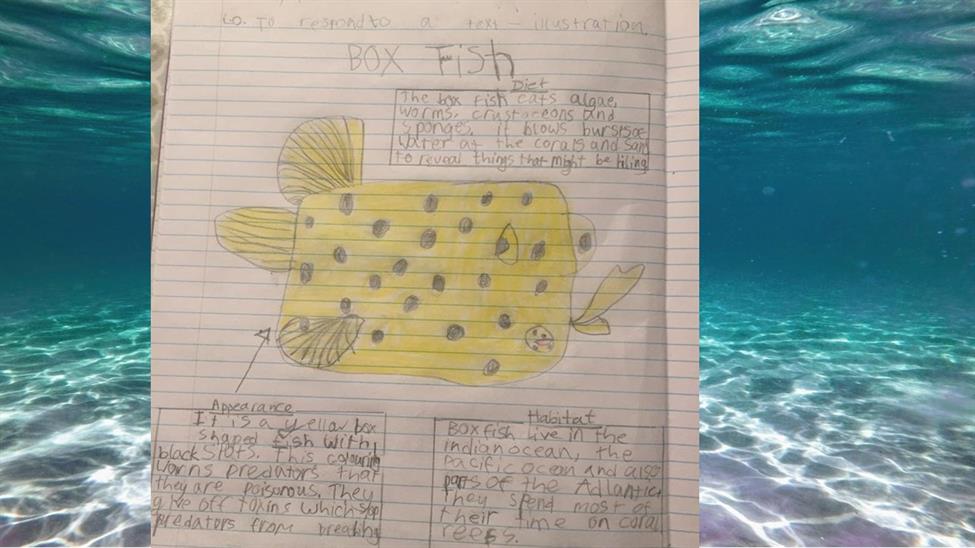 L.O. To respond to a text - illustration.
BOX Fish
Diet
The box fish eats algae,
worms, crustaceons and
sponges. it blows bursts of
water at the corals and sand
to reveal things that might be hiling
Appearance
It is a yellow box
shaped fish with
black spots. This colouring
worns predators that
they are poisorous. They
give off toxins which stop
predators from breathing
Habitat
Box fish live in the
indian ocean, the
pacific ocean and also
parts of the Adlantic.
They spend most of
their time on coral
reefs.